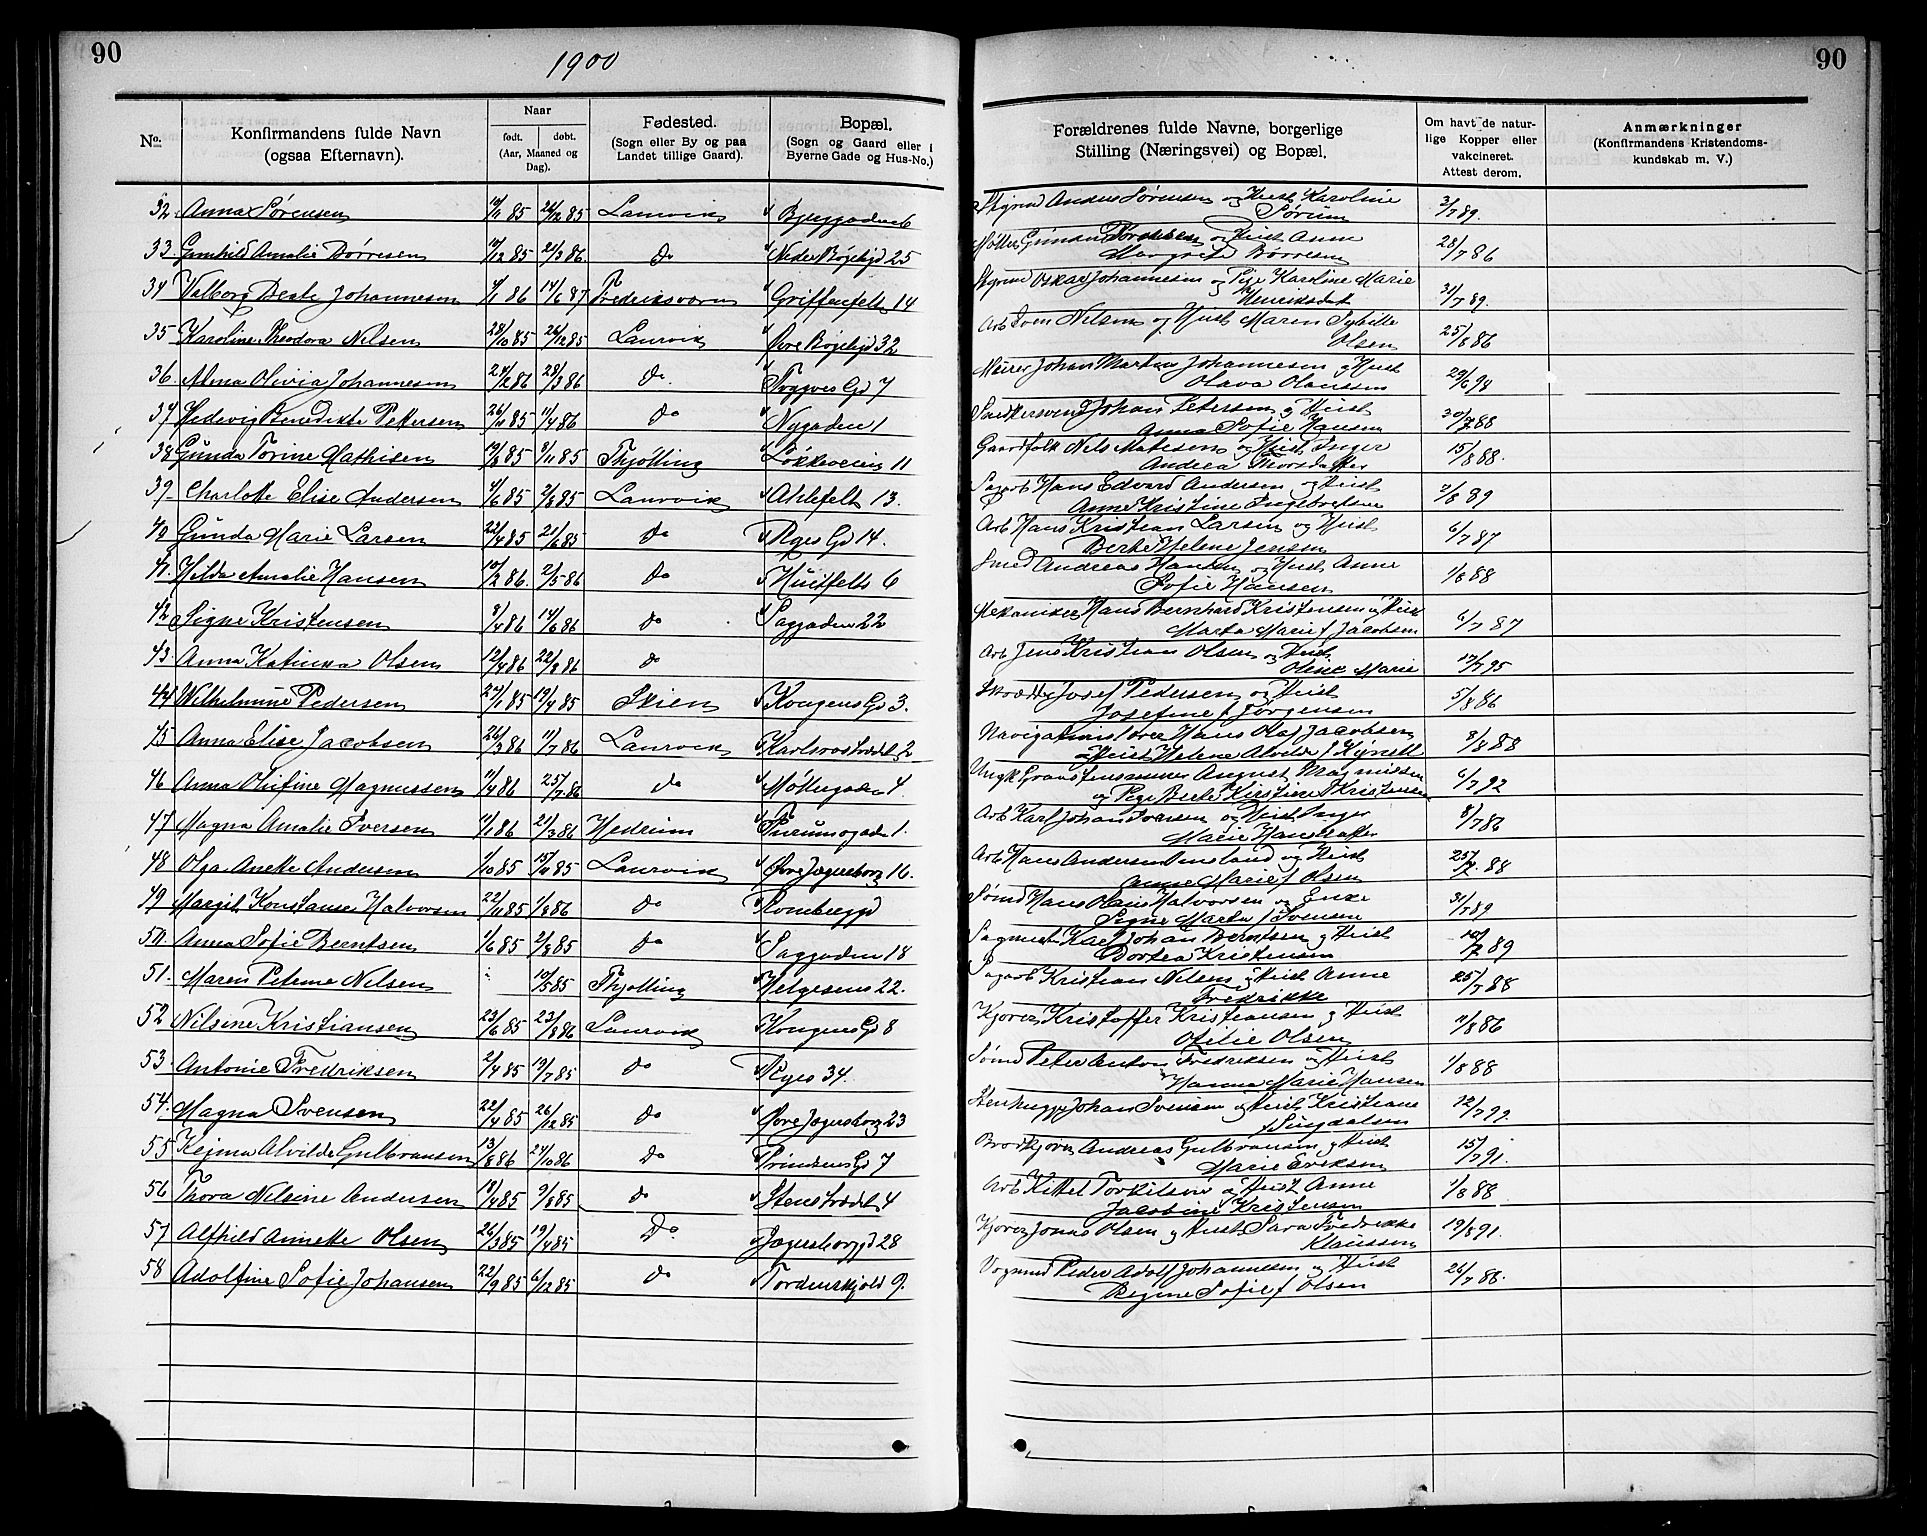 90
1900
No.
Konfirmandens fulde Navn
(ogsaa Efternavn).
Naar
født. døbt.
(Aar, Maaned og
Dag).
Fødested.
(Sogn eller By og paa
Landet tillige Gaard).
Bopæl.
(Sogn og Gaard eller i
Byerne Gade og Hus-No.)
32. Anna Sørensen 85 26/12 85 Laurvik
33. Gunhild Amalie Børresen 85 21/3 86 do Nedre Bøjelgd 25
34 Valborg Beate Johannesen 86 14/6 87 Fredriksværn Griffenfelts 14
35 Karoline Theodora Nilsen 28/10 85 26/12 85 Laurvik Øvre Bøjelgd 32
36. Alena Olivia Johannesen 86 28/3 86 do. Trygves Gd 7
37 Hedevig Benedikte Pettersen 85 11/4 86 do Nygaden 1
38 Gunda Torine Mathisen 85 8/11 85 Thjølling Løkkeveien 11
39. Charlotte Elise Andersen 4/6 85 2/8 85 Laurvik Ahlefelt 13.
40 Gunda Marie Larsen 22/4 85 21/6 85 do Ryes Gd 14.
41. Hilda Amalie Hansen 10/2 86. 2/5 86 do Huitfelts 6
42 Signe Kristensen 8/4 86 14/6 86 do Saggaden 22
43. Anna Katinka Olsen 12/4 86 22/8 86 do
44 Wilhelmine Pedersen 85 19/4 85 Skien Kongens Gd 3.
45 Anna Elise Jacobsen 26/3 86 11/7 86 Laurvik Karlsrostrædet 2
46 Anna Olufine Magnussen 11/4 86 25/7 86 do Møllergaden 4.
47 Magna Amalie Iversen 11/1 86 21/3 86 Hedrum 1.
48 Olga Anette Andersen 1/10 85 15/11 85 Laurvik Øvre Jegersborg 16.
49 Margit Konstanse Halvorsen 22/11 85 1/8 86 do
50. Anna Sofie Berntsen 1/6 85 2/8 85 do Saggaden 18
51. Maren Petrine Nilsen 10/5 85 Thjølling Helgesens 22.
52 Nilsine Kristiansen 23/6 85 23/8 86 Laurvik Kongens Gd 8
53. Antonie Fredriksen 2/4 85 19/7 85 do Ryes 34.
54. Magna Svensen 22/4 85 26/12 85 do Øvre Jegersborg 23
55 Alvilde Gulbransen 13/8 86 24/10 86 do Prindsens Gd 7
56 Thora Nilsine Andersen 18/4 85 9/8 85 do Stenstrædet 4
57 Alfhild Annette Olsen 26/3 85 19/4 85 Do Jegersborggd 28
58 Adolfine Sofie Johansen 22/9 85 6/12 85 do Tordenskjold 9.
90
Forældrenes fulde Navne, borgerlige
Stilling (Næringsvei) og Bopæl.
Om havt de natur-
lige Kopper eller
vakcineret.
Attest derom.
Anmærkninger
(Konfirmandens Kristendoms-
kundskab m. V.)
Anders Sørensen og Hust Karoline 31/7 89.
Sørum
Gunnar og Hust Anne 28/7 86
Margrete Børresen
Oskar Johannesen og Pige Karoline Marie 31/7 89.
Henriksdat
Arb Sven Nilsen og Hust Maren Sybille 25/8 86
Olsen
Murer Johan Martin Johannesen og Hust 29/6 98
Olava Olaussen
Snedkersvend Johan Petersen og Hust 88
Anna Sofie Hansen
Gaardfolk Nils Mathisen og Hust Inger 15/8 88.
Andrea Thorsdatter
Sagarb Hans Edvard Andersen og Hust 89
Anne Kristine Ingebretsen
Arb Hans Kristian Larsen og Hust 6/7 87
Berte Helene Jenssen
Smed Andreas Hansen og Hust Anne 1/8 88
Sofie Hansen
Mekaniker Hans Bernhard Kristensen og Hust 6/7 87
Marta Marie f Jacobsen
Arb Jens Kristian Olsen og Hust 17/7 95
Oline Marie
Skrædder Josef Pedersen og Hust 5/8 86
Josefine f Jørgensen
Navigationslærer Hans Olaf Jacobsen 8/8 88
og Hust Helene Alvilde f
Ungk August Magnussen 6/7 92
og Pige Berte Kirstine Kristensen
Arb Karl Johan Iversen og Hust Inger 8/7 86
Marie Hansdatter
Arb Hans Andersen og Hust 88
Anne Marie f Olsen
Sømd Hans Olaus Halvorsen og Enke 31/7 89
Signe Marta f Svensen
Karl Johan Berntsen og Hust 89
Dortea Kristensen
Sagarb Kristian Nilsen og Hust Anne 25/7 88
Fredrikke
Kjører Kristoffer Kristiansen og Hust 11/8 86
Otilie Olsen
Sømd Peter Anton Fredriksen og Hust 1/8 88
Hanna Marie Hansen
Stenhugger Johan Svensen og Hust Kristiane 12/7 92.
f Lingdalsen
Brødkjører Andreas Gulbransen og Hust 15/7 91.
Marie Eriksen
Arb Kittel Torkilsen og Hust Anne 1/8 88
Jacobine Kristensen
Kjører Jonas Olsen og Hust Sara Fredrikke 19/8 91.
Klaussen
Vognmd Peder Adolf Johannesen og Hust 26/7 88.
Regine Sofie f Olsen